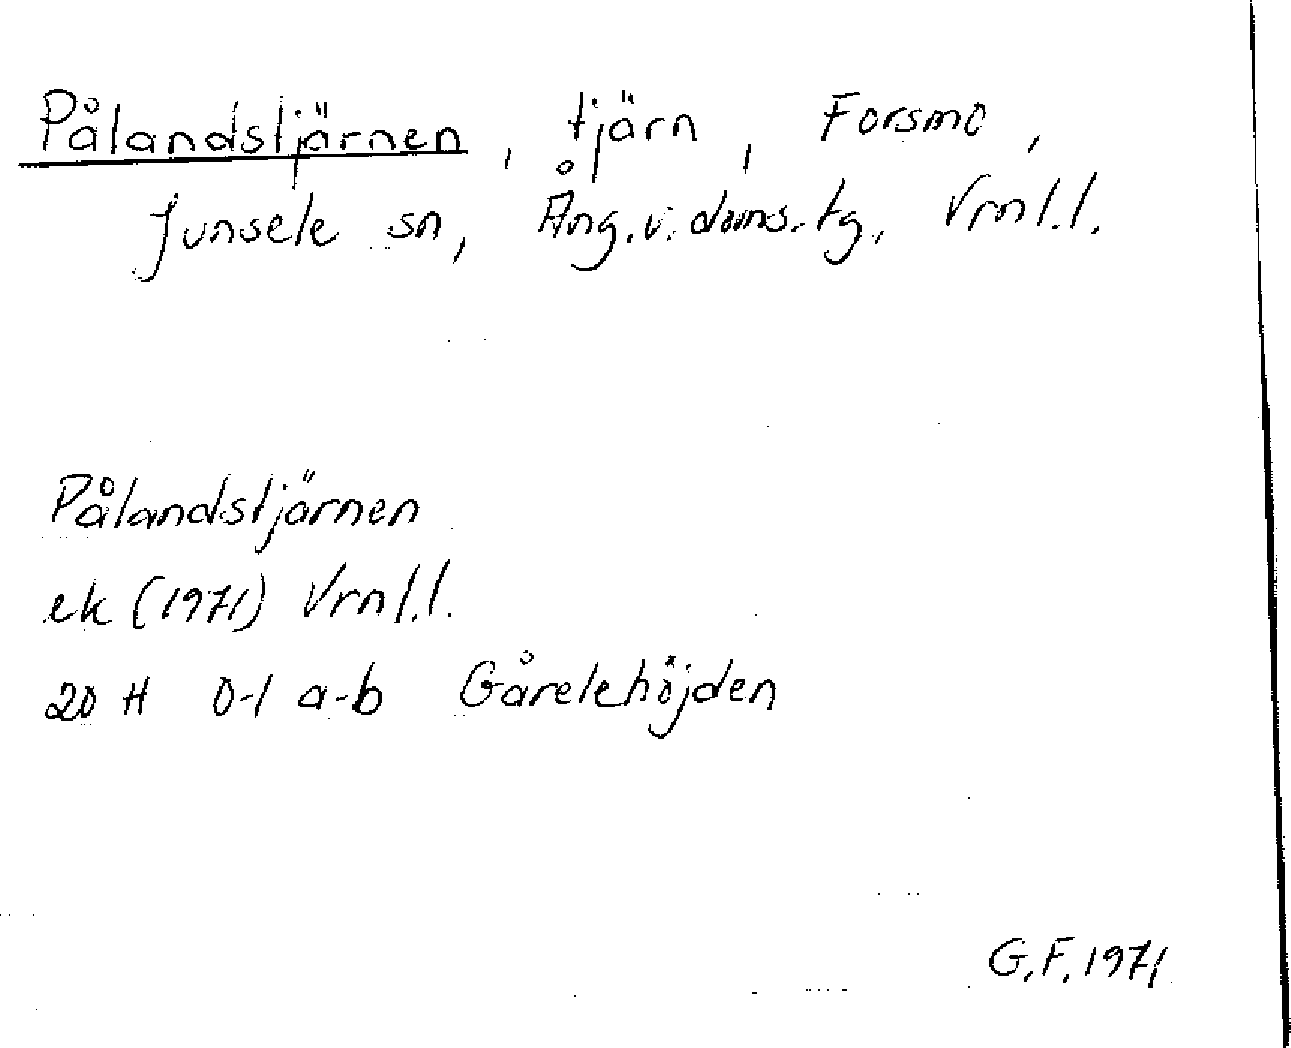 Pålandstjärnen, tjärn, Forsmo,
Junsele sn, Ång.v.doms.tg, Vrnl.l.
Pålandstjärnen
ek (1971) Vrnl.l.
20 H 0-1 a-b Gårelehöjden
G.F. 1971